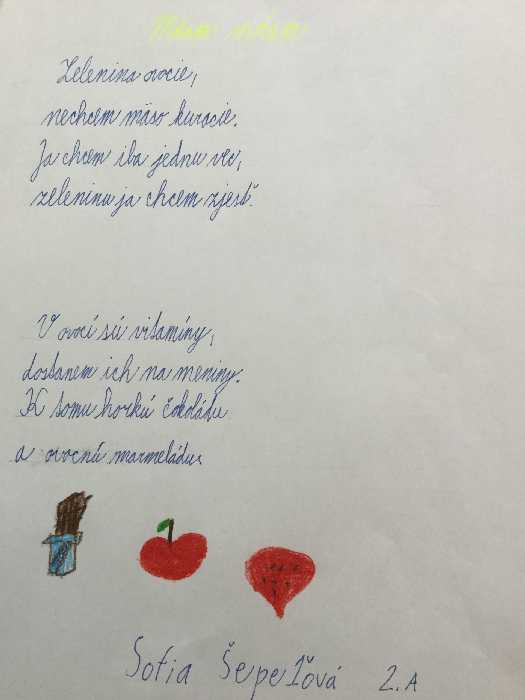 Zelenina ovocie,
nechcem mäso kuracie.
Ja chcem iba jednu vec,
zeleninu ja chcem zjesť.
V ovocí sú vitamíny,
dostanem ich na meniny.
K tomu horkú čokoládu
a ovocnú marmeládu.
Sofia Šepeľová 2.A